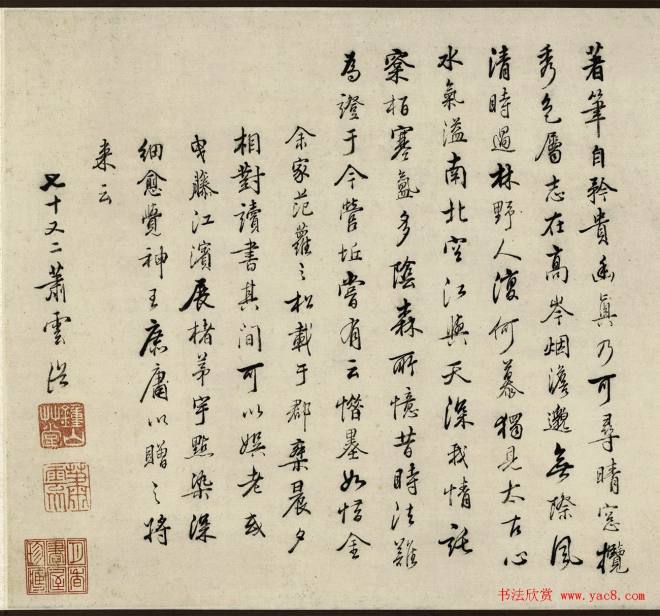 著筆自矜貴幽真乃可尋晴窓攬
秀色屬志在高岑烟澹邈無際風
清時過林野人復何慕獨見太古心
水氣溢南北空江與天深我情託
寀栢寒氣多陰森所憶昔時法難
為證于今營丘嘗有云惜墨如惜金
余家范蘿之松載于郡乗晨夕
相對讀書其間可以娛老或
曳藤江濱展楮茅宇點染深
細愈覺神王賡庸以贈之將
来云
七十又二蕭雲從
鍾山草堂
蕭雲從
書屋珍
书法欣赏 www.yac8.com